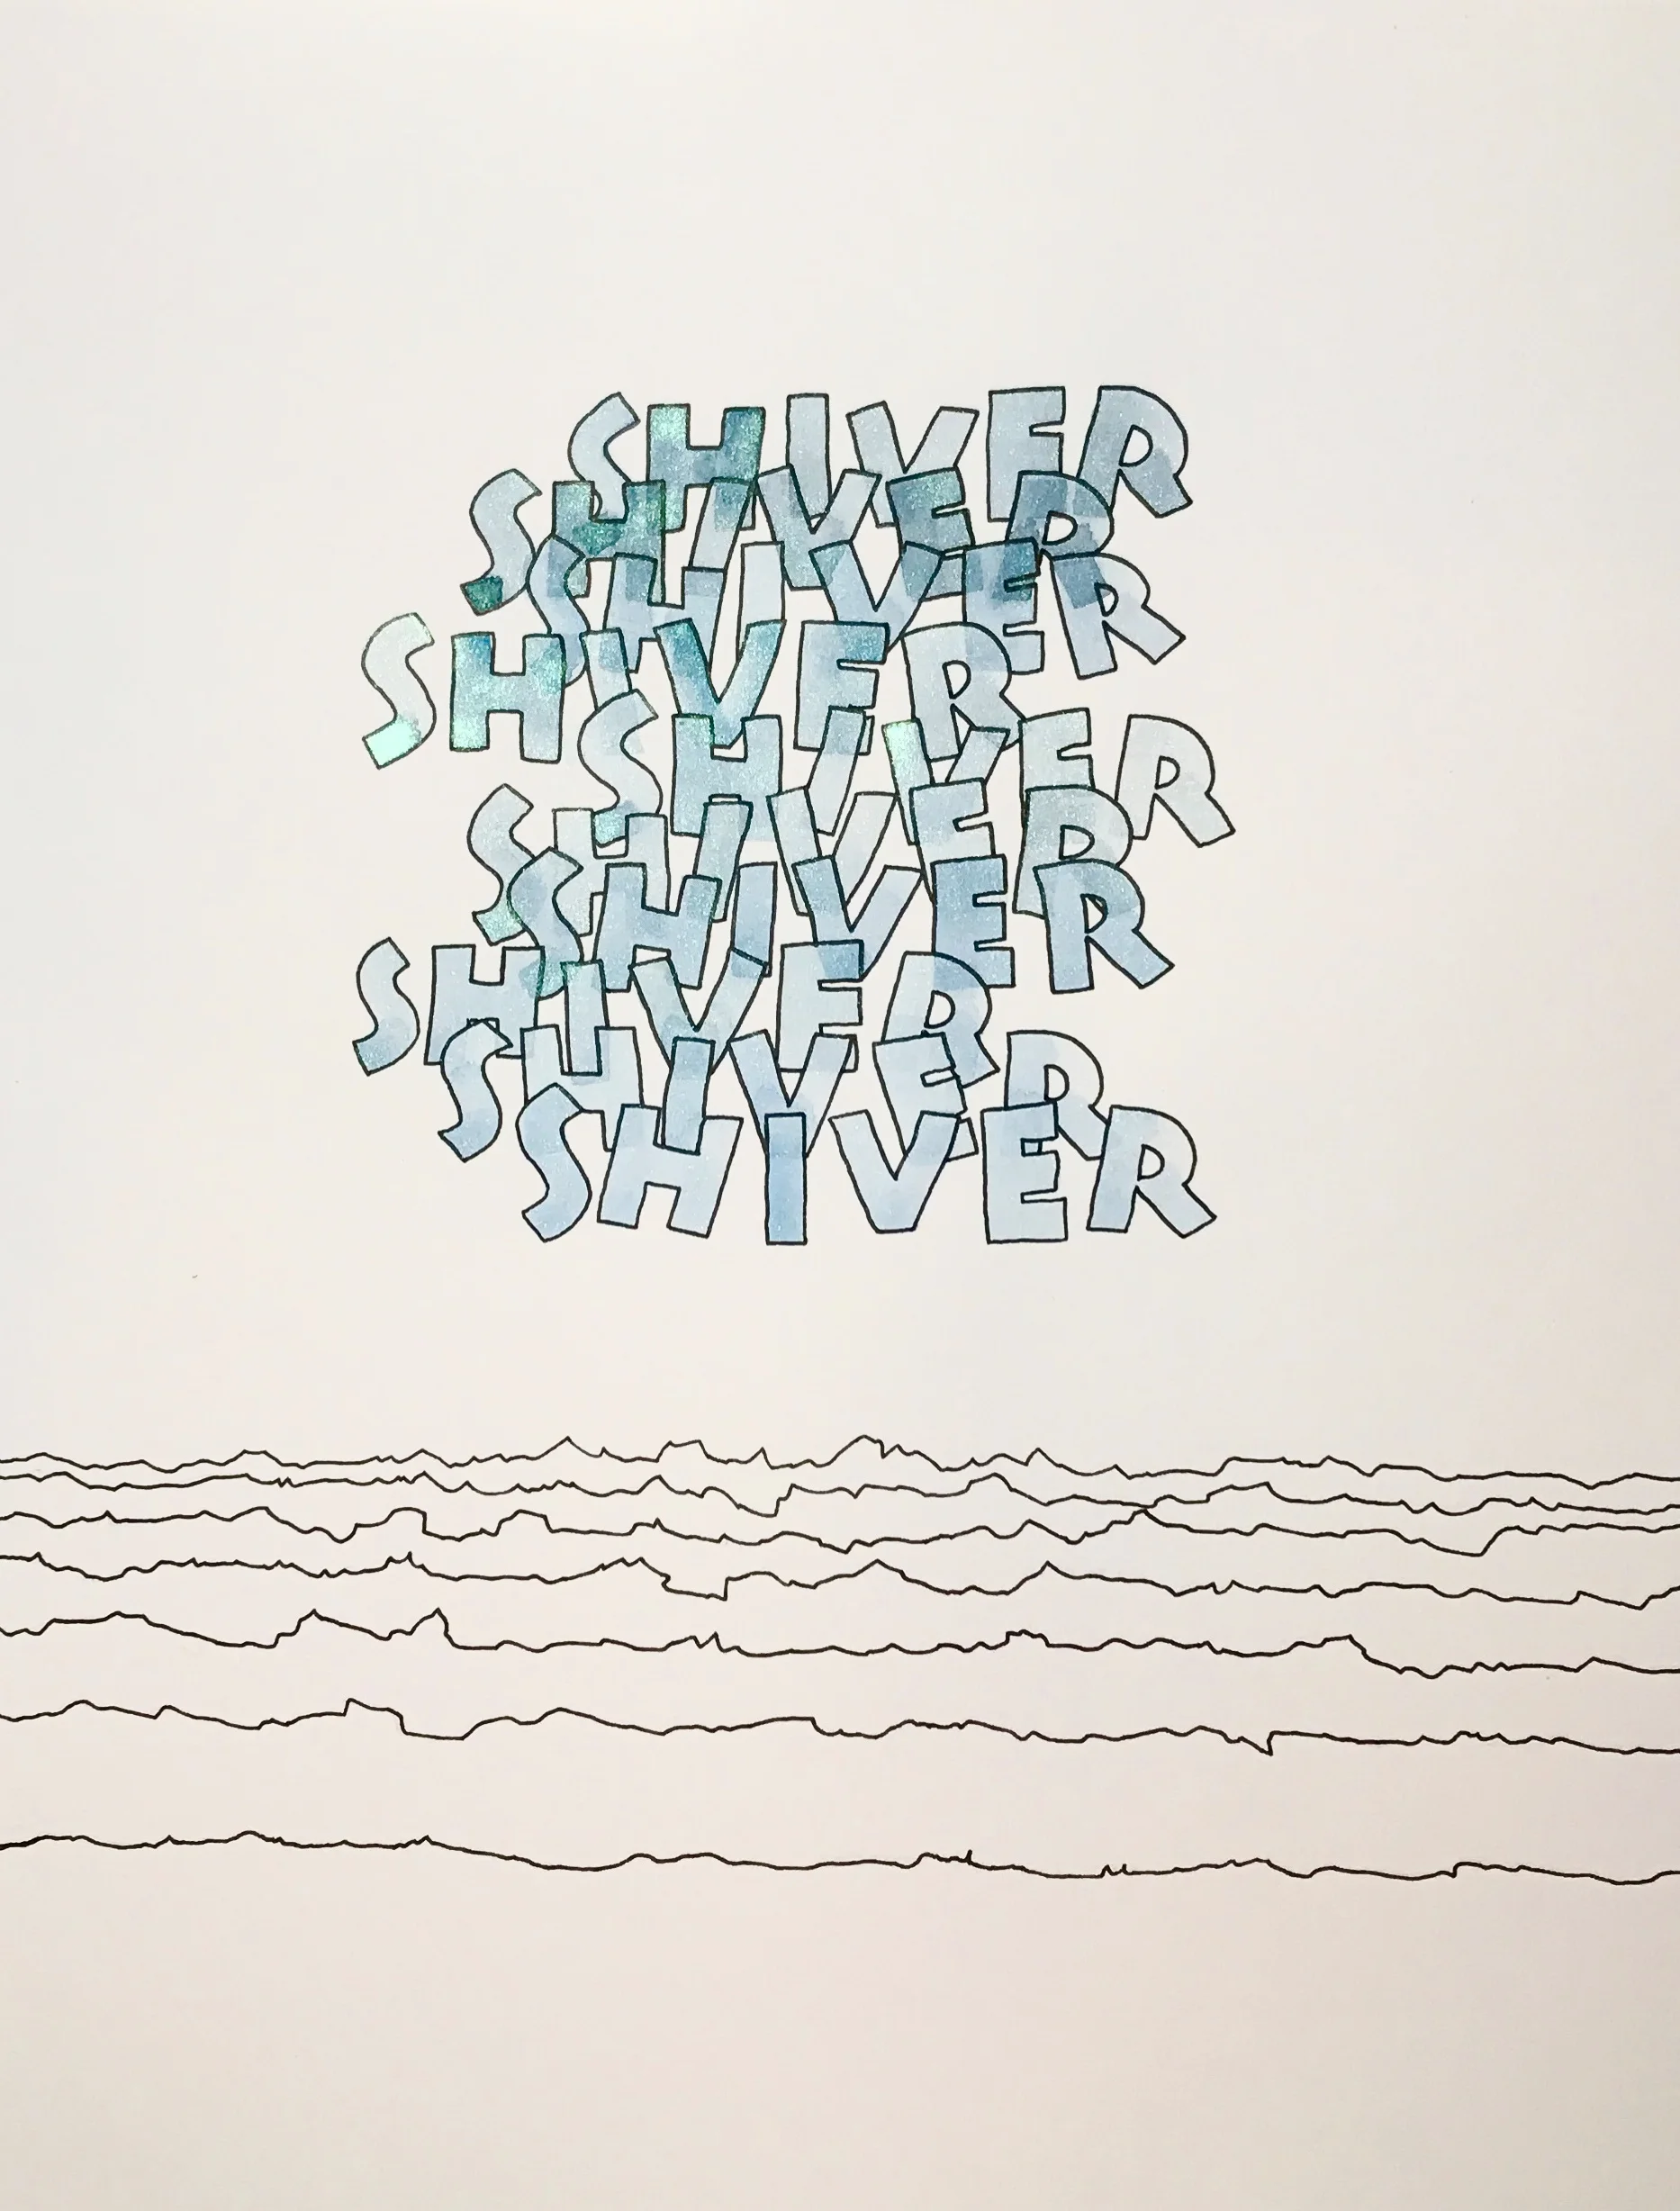 SHIVER
SHIVER
SHIVER
SHIVER
SHIVER
SHIVER
SHIVER
SHIVER
SHIVER
SHIVER